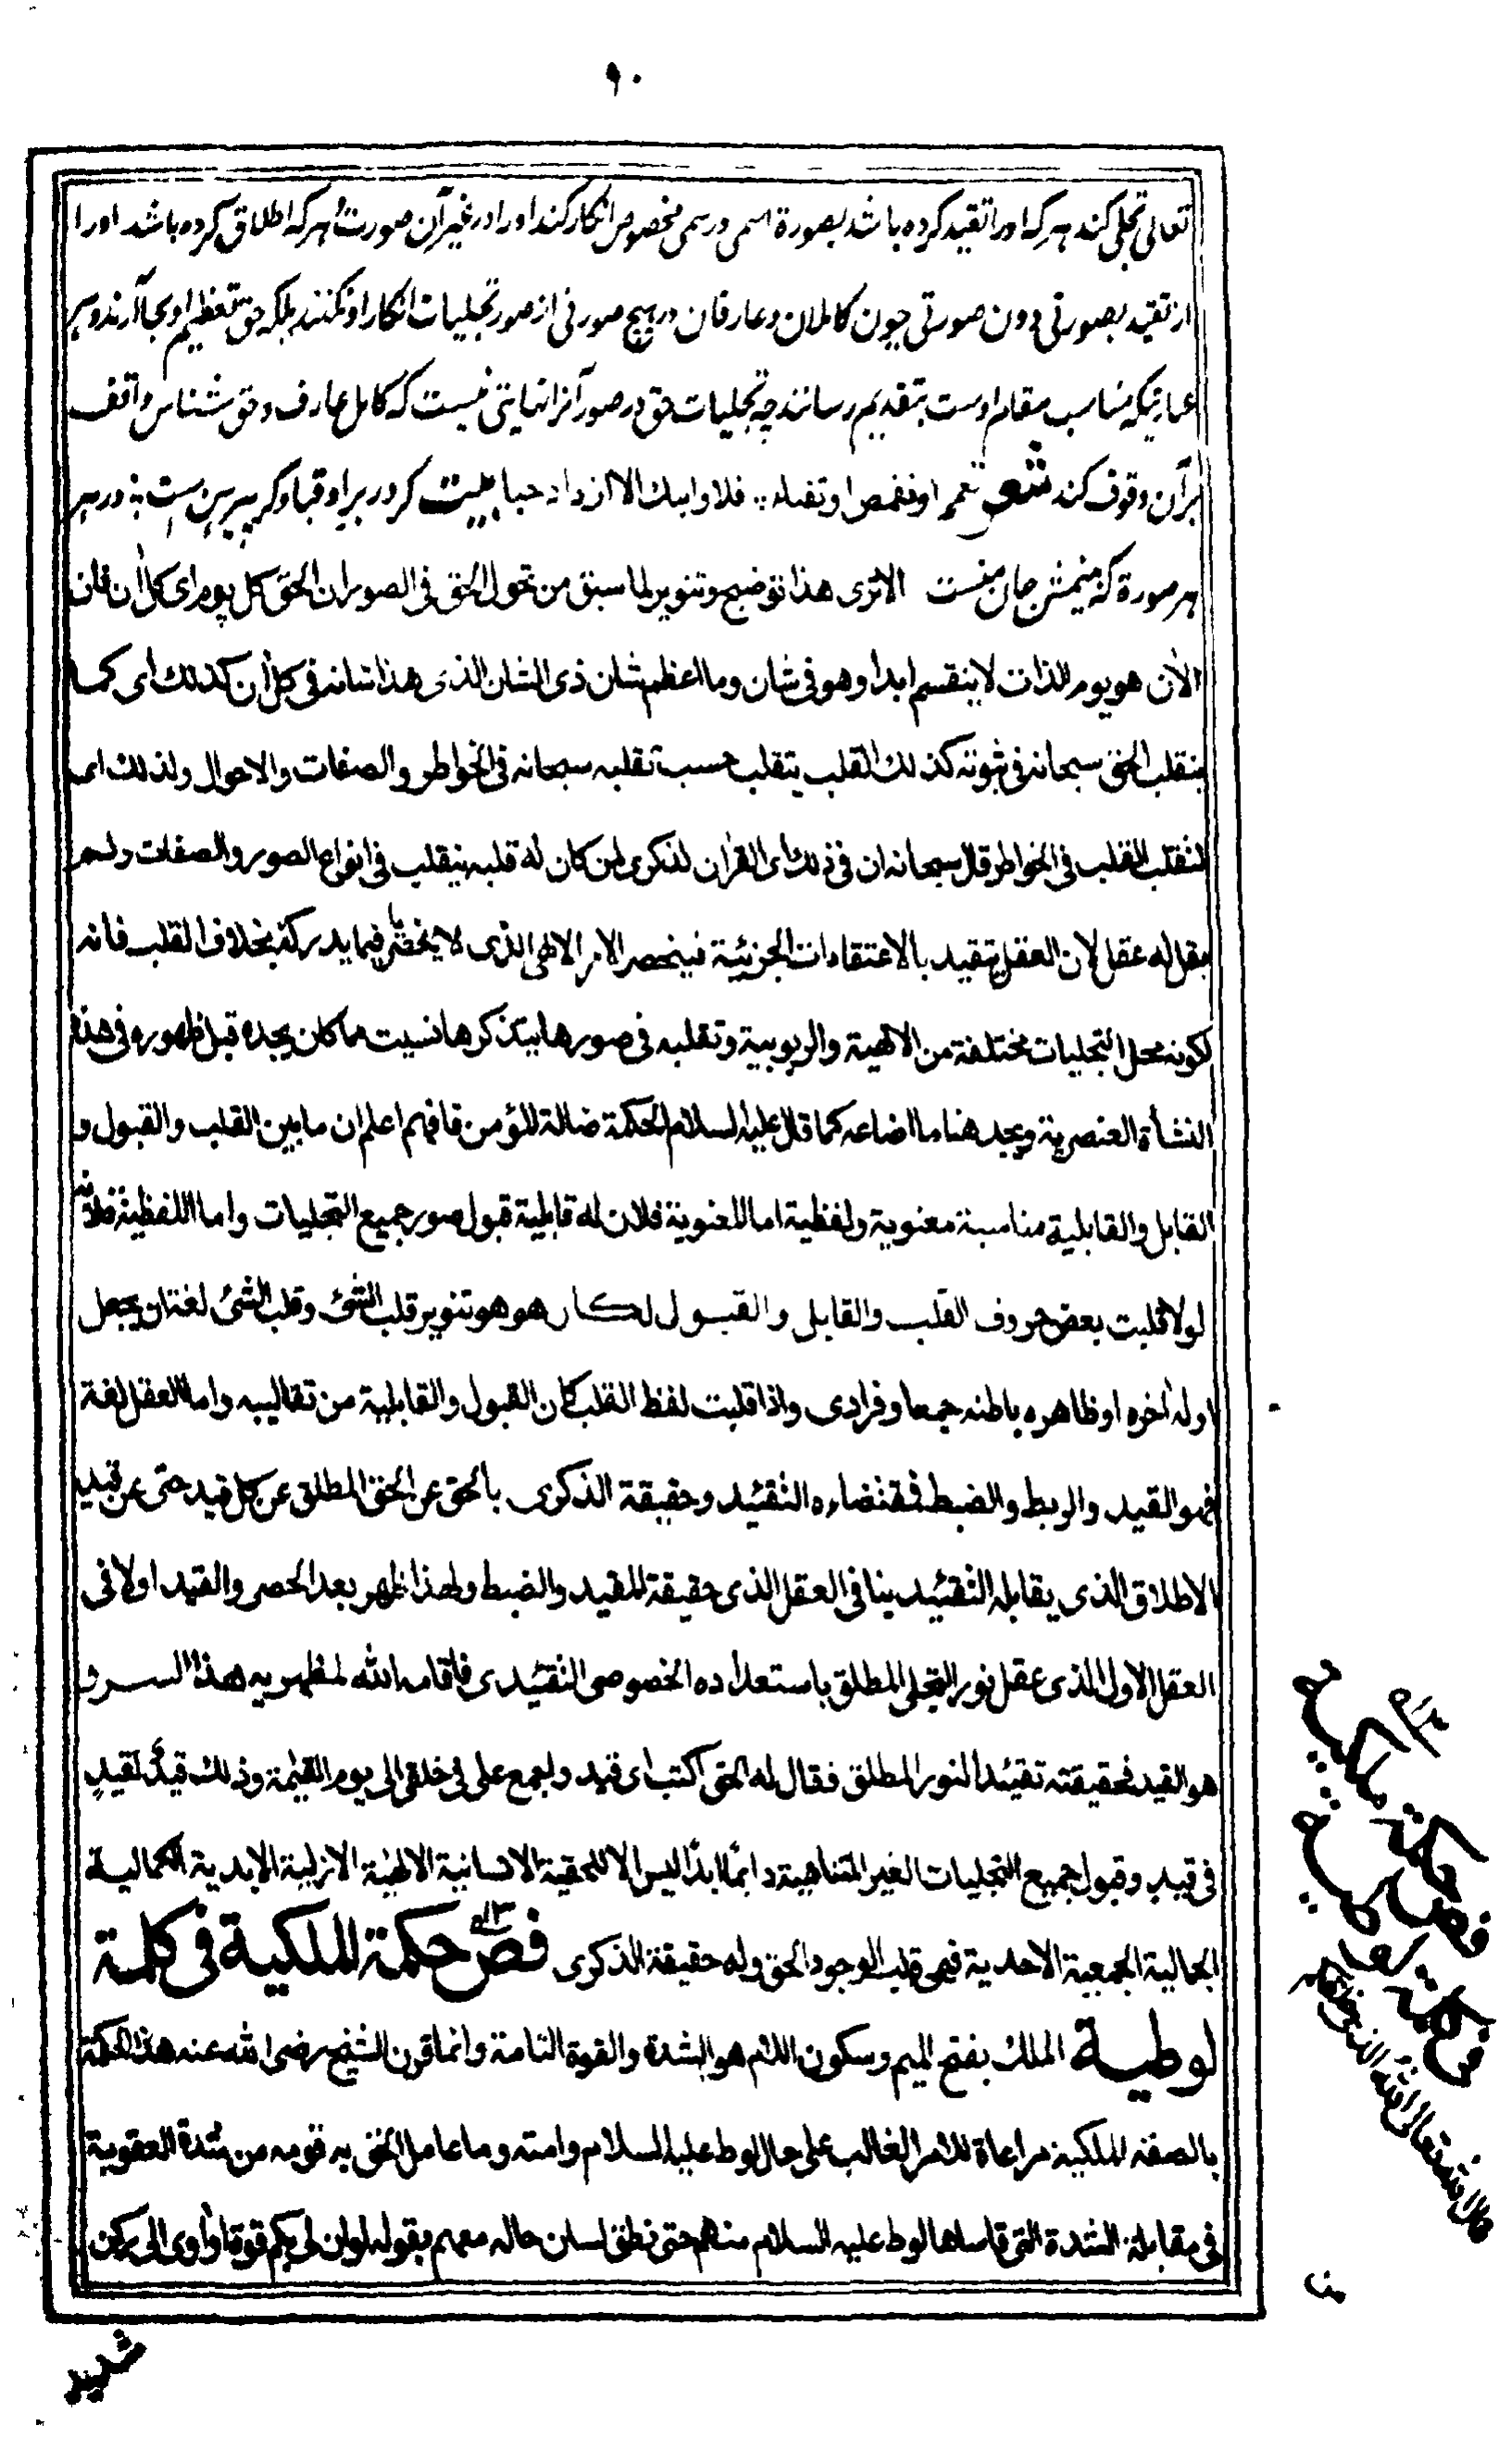 ۹۰
تعالی تجلی کند هر که اورا تقید کرده باشد بصورة اسمی و رسمی مخصوص انکار کند اورا در غیر آن صورت و هر که اطلاق کرده باشد اورا
از تقید بصورتی دون صورتی چون کاملان و عارفان در هیچ صورتی از صور تجلیات انکار او نکنند بلکه حق تعظیم او بجا آرند و هر
عبارتیکه مناسب مقام اوست بتقدیم رسانند چه تجلیات حق در صور آنرا نهایتی نیست که کامل عارف و حق شناس واقف
بر آن وقوف کند شعر تعمم او تقمص او تقباء فلا وابیك الا ازداد حبا بیت کر در بر او قبا و کر پیرهن ست در هر
هر صورة که بینمش جان منست الا ترى هذا توضیح و تنویر لما سبق من تحول الحق فی الصور ان الحق کل یوم ای کل آن فان
الآن هو یوم الذات لا ینقسم ابدا وهو فی شان وما اعظم شان ذی الشان الذی هذا شانه فی کل آن کذلك ای کما
یتقلب الحق سبحانه فی شؤنه کذلك القلب یتقلب حسب تقلبه سبحانه فی الخواطر والصفات والاحوال ولذلك ای
لتقلب القلب فی الخواطر قال سبحانه ان فی ذلك ای القرآن لذکرى لمن کان له قلب یتقلب فی انواع الصور والصفات ولم
یقل له عقل لان العقل یتقید بالاعتقادات الجزئیة فینحصر الامر الالهی الذی لا ینحصر فیما یدرکه بخلاف القلب فانه
لکونه محل التجلیات مختلفة من الالهیة والربوبیة وتقلبه فی صورها یتذکر ها نسیت مما کان یجده قبل ظهوره فی هذه
النشأة العنصریة ویجد هنا ما اضاعه کما قال علیه السلام الحکمة ضالة المؤمن فافهم اعلم ان ما بین القلب والقبول و
القابل والقابلیة مناسبة معنویة ولفظیة اما المعنویة فلان له قابلیة قبول صور جمیع التجلیات واما اللفظیة فلانه
لولا قلبت بعض حروف القلب والقابل والقبول لکان هو هو تنویر قلب الشئ وقلب الشئ لغة ان یجعل
اوله آخره او ظاهره باطنه جمعا وفرادى واذا قلبت لفظ القلب کان القبول والقابلیة من تقالیبه واما العقل لغة
فهو القید والربط والضبط فمقتضاه التقئید وحقیقة الذکرى بالحق عن الحق المطلق عن کل قید حتى عن قید
الاطلاق الذی یقابله التقئید ینافی العقل الذی حقیقة المقید والضبط ولهذا ظهر بعد الحصر والقید اولا فی
العقل الاول الذی عقل نور التجلی المطلق باستعداده الخصوصی التقئیدی فاقامه الله لمظهریه هذا السر و
هو القید فحقیقته تقئید النور المطلق فقال له الحق اکتب ای قید ولجمع علی فی خلقی الى یوم القیمة وذلك قید لقید
فی قید وقبول جمیع التجلیات الغیر المتناهیة دائما ابدا لیس الا للحقیة الانسانیة الالهیة الازلیة الابدیة الکمالیة
الجمالیة الجمعیة الاحدیة فهی قلب الوجود الحق وله حقیقة الذکرى فص حکمة الملکیة فی کلمة
لوطیة الملك بفتح المیم وسکون اللام هو الشدة والقوة التامة وانما قرن الشیخ رضی الله عنه هذه الحکمة
بالصفة الملکیة مراعاة للامر الغالب على حال لوط علیه السلام وامته وما عامل الحق به قومه من شدة العقوبة
فی مقابلة الشدة التی قاساها لوط علیه السلام منهم حتى نطق لسان حاله معهم بقوله لو ان لی بکم قوة او آوی الى رکن
شدید
فص حکمة ملکیة
فی کلمة لوطیة
قال الله تعالى الله الذی خلقکم
من